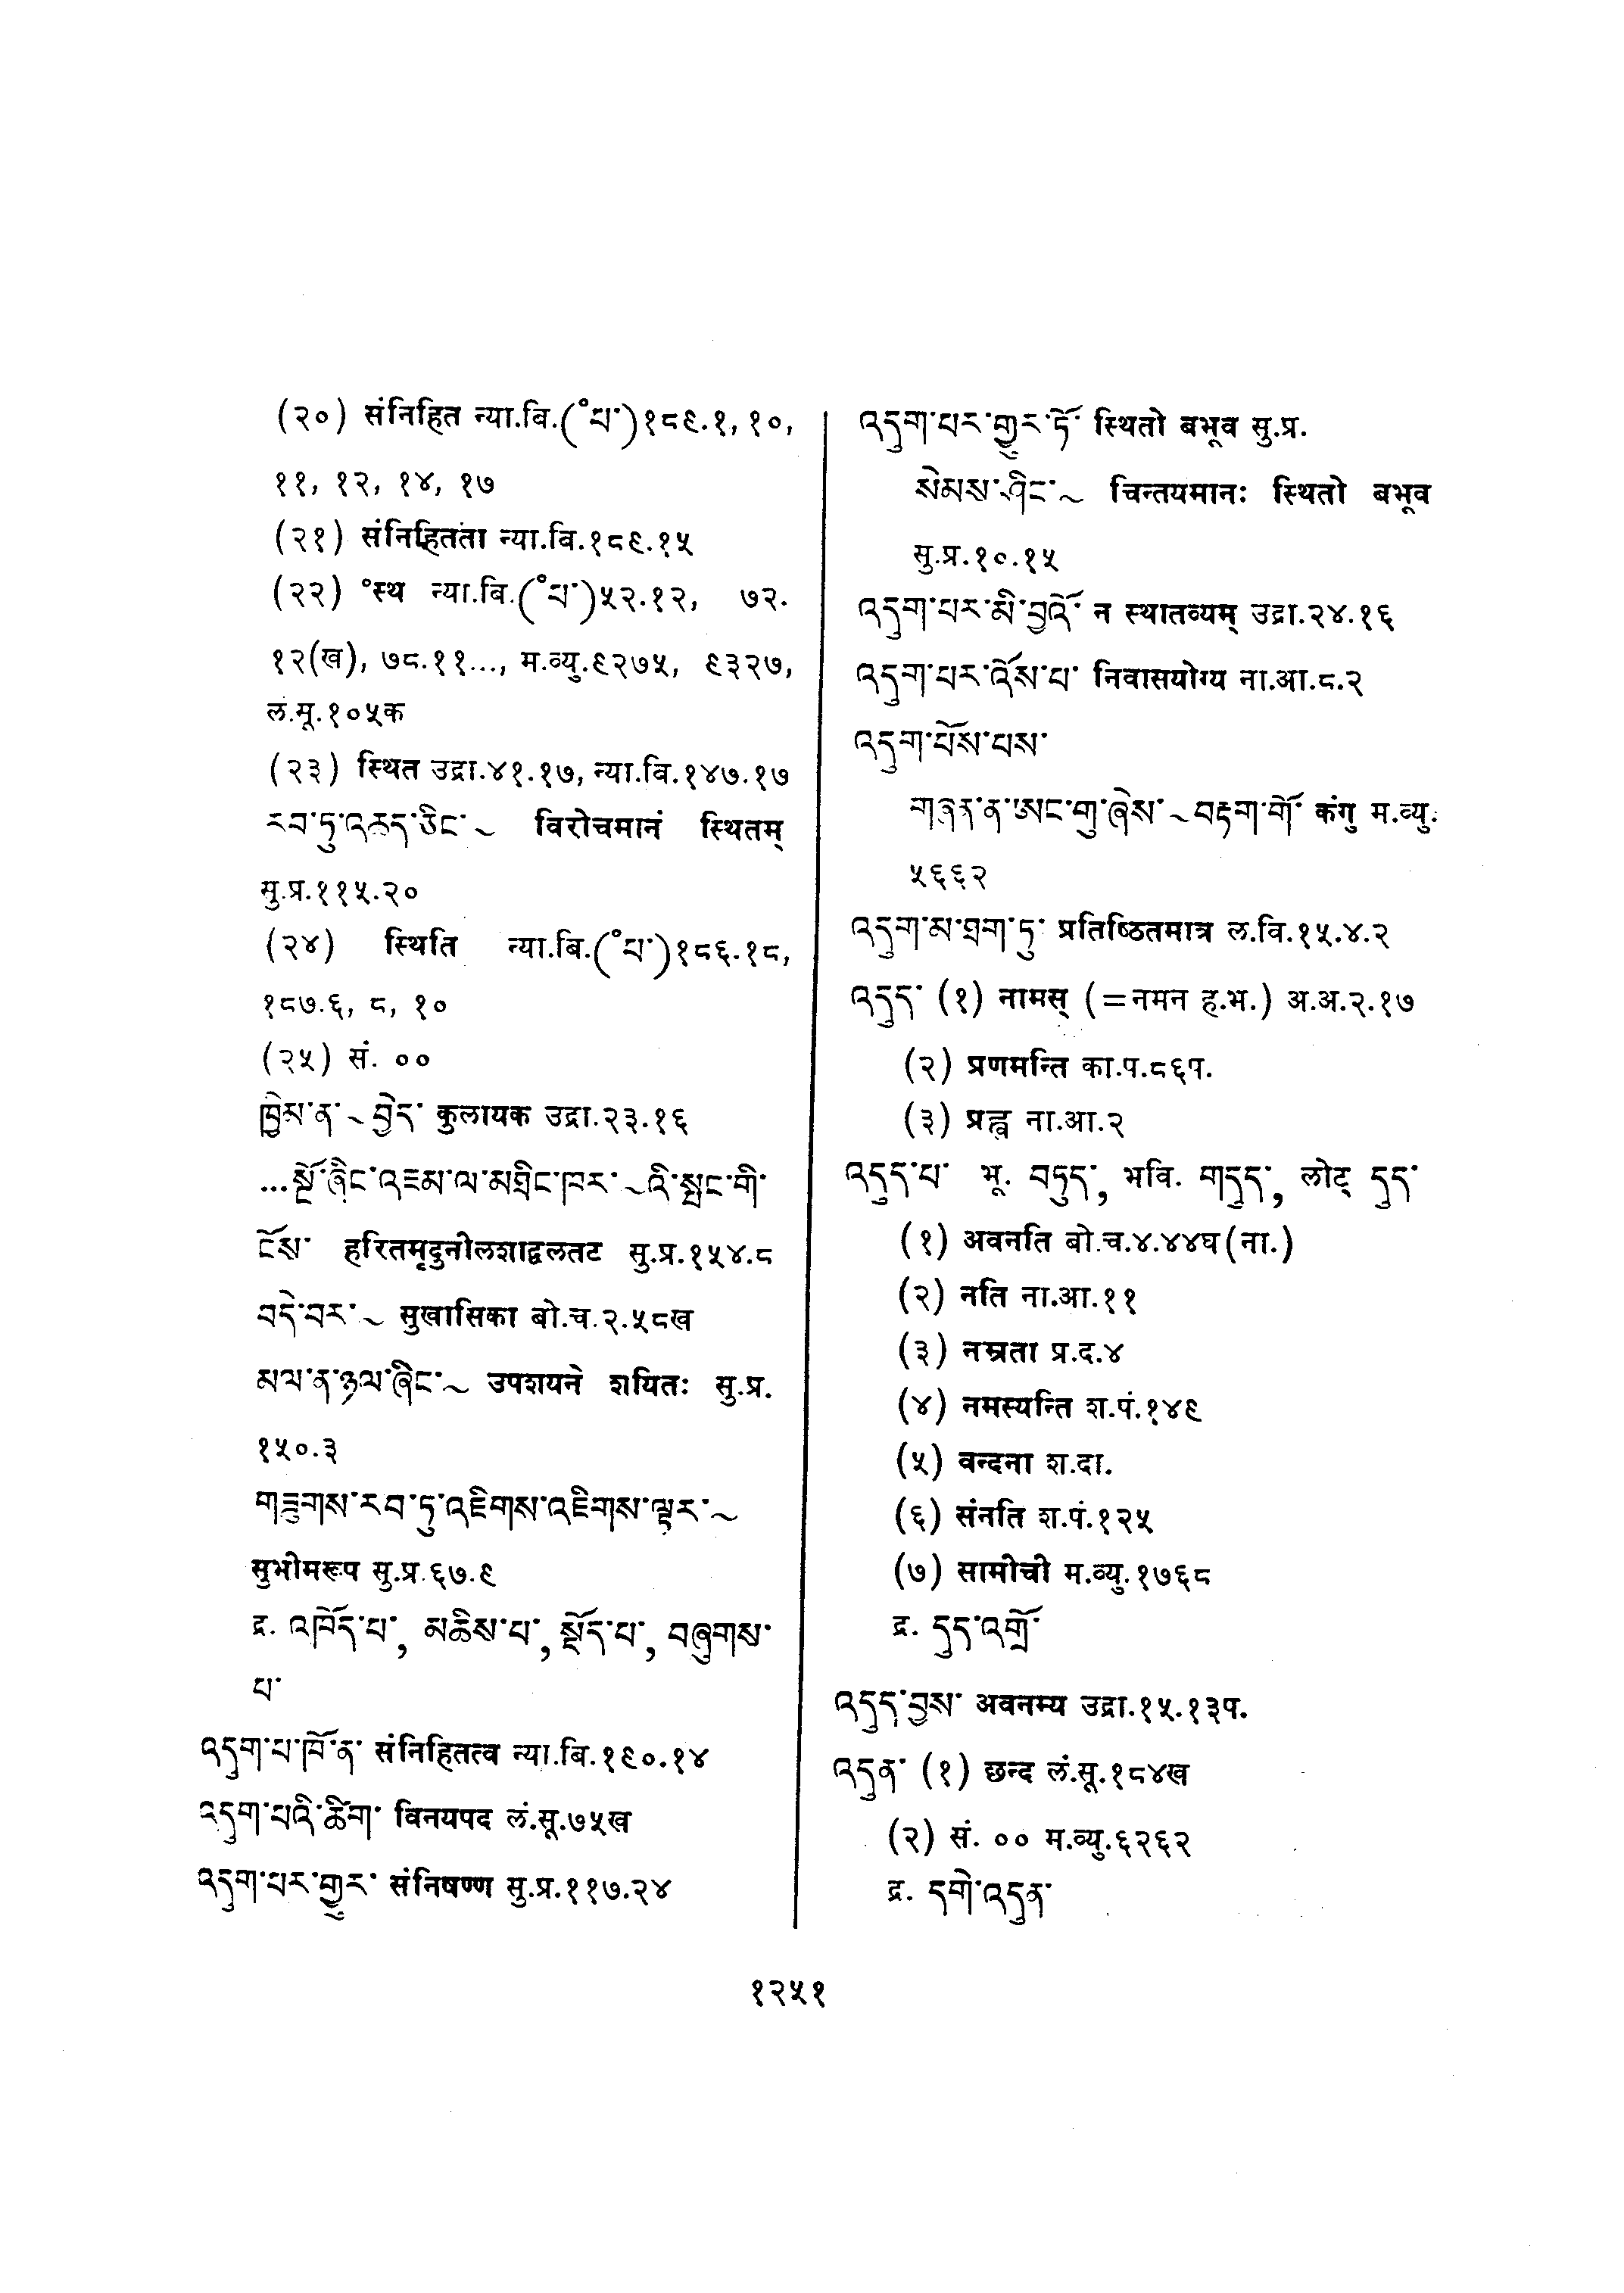 (२०) संनिहित न्या.बि.(॰པ་)१८९.१, १०,
११, १२, १४, १७
(२१) संनिहितता न्या.बि.१८९.१५
(२२) ॰स्थ न्या.बि.(॰པ་)५२.१२, ७२.
१२(ख), ७८.११..., म.व्यु.९२७५, ९३२७,
लं.सू.१०५क
(२३) स्थित उद्रा.४१.१७, न्या.बि.१४७.१७
རབ་ཏུ་འཆད་ཅིང་~ विरोचमानं स्थितम्
सु.प्र.११५.२०
(२४) स्थिति न्या.बि.(॰པ་)१८६.१८,
१८७.६, ८, १०
(२५) सं. ००
ཁྱིམ་ན་~བྱེད་ कुलायक उद्रा.२३.१६
...སྔོ་ཞིང་འཇམ་ལ་མཐིང་ཁར་~འི་སྤང་གི་
ངོས་ हरितमृदुनीलशाद्वलतट सु.प्र.१५४.८
བདེ་བར་~ सुखासिका बो.च.२.५८ख
མལ་ན་ཉལ་ཞིང་~ उपशयने शयितः सु.प्र.
१५०.३
གཟུགས་རབ་ཏུ་འཇིགས་འཇིགས་ལྟར་~
सुभीमरूप सु.प्र.६७.९
द्र. འཁོད་པ་, མཆིས་པ་, སྡོད་པ་, བཞུགས་
པ་
འདུག་པ་ཁོ་ན་ संनिहितत्व न्या.बि.१९०.१४
འདུག་པའི་ཚིག་ विनयपद लं.सू.७५ख
འདུག་པར་གྱུར་ संनिषण्ण सु.प्र.११७.२४
འདུག་པར་གྱུར་ཏོ་ स्थितो बभूव सु.प्र.
སེམས་ཤིང་~ चिन्तयमानः स्थितो बभूव
सु.प्र.१०.१५
འདུག་པར་མི་བྱའོ་ न स्थातव्यम् उद्रा.२४.१६
འདུག་པར་འོས་པ་ निवासयोग्य ना.आ.८.२
འདུག་པོས་པས་
གཞན་ན་ཨང་གུ་ཞེས་~བརྟག་གོ་ कंगु म.व्यु.
५६६२
འདུག་མ་ཐག་ཏུ་ प्रतिष्ठितमात्र ल.वि.१५.४.२
འདུད་ (१) नामस् (=नमन ह.भ.) अ.अ.२.१७
(२) प्रणमन्ति का.प.८६प.
(३) प्रह्व ना.आ.२
འདུད་པ་ भू. བཏུད་, भवि. གདུད་, लोट् དུད་
(१) अवनति बो.च.४.४४घ(ना.)
(२) नति ना.आ.११
(३) नम्रता प्र.द.४
(४) नमस्यन्ति श.पं.१४९
(५) वन्दना श.दा.
(६) संनति श.पं.१२५
(७) सामीची म.व्यु.१७६८
द्र. དུད་འགྲོ་
འདུད་བྱས་ अवनम्य उद्रा.१५.१३प.
འདུན་ (१) छन्द लं.सू.१८४ख
(२) सं. ०० म.व्यु.६२६२
द्र. དགེ་འདུན་
१२५१